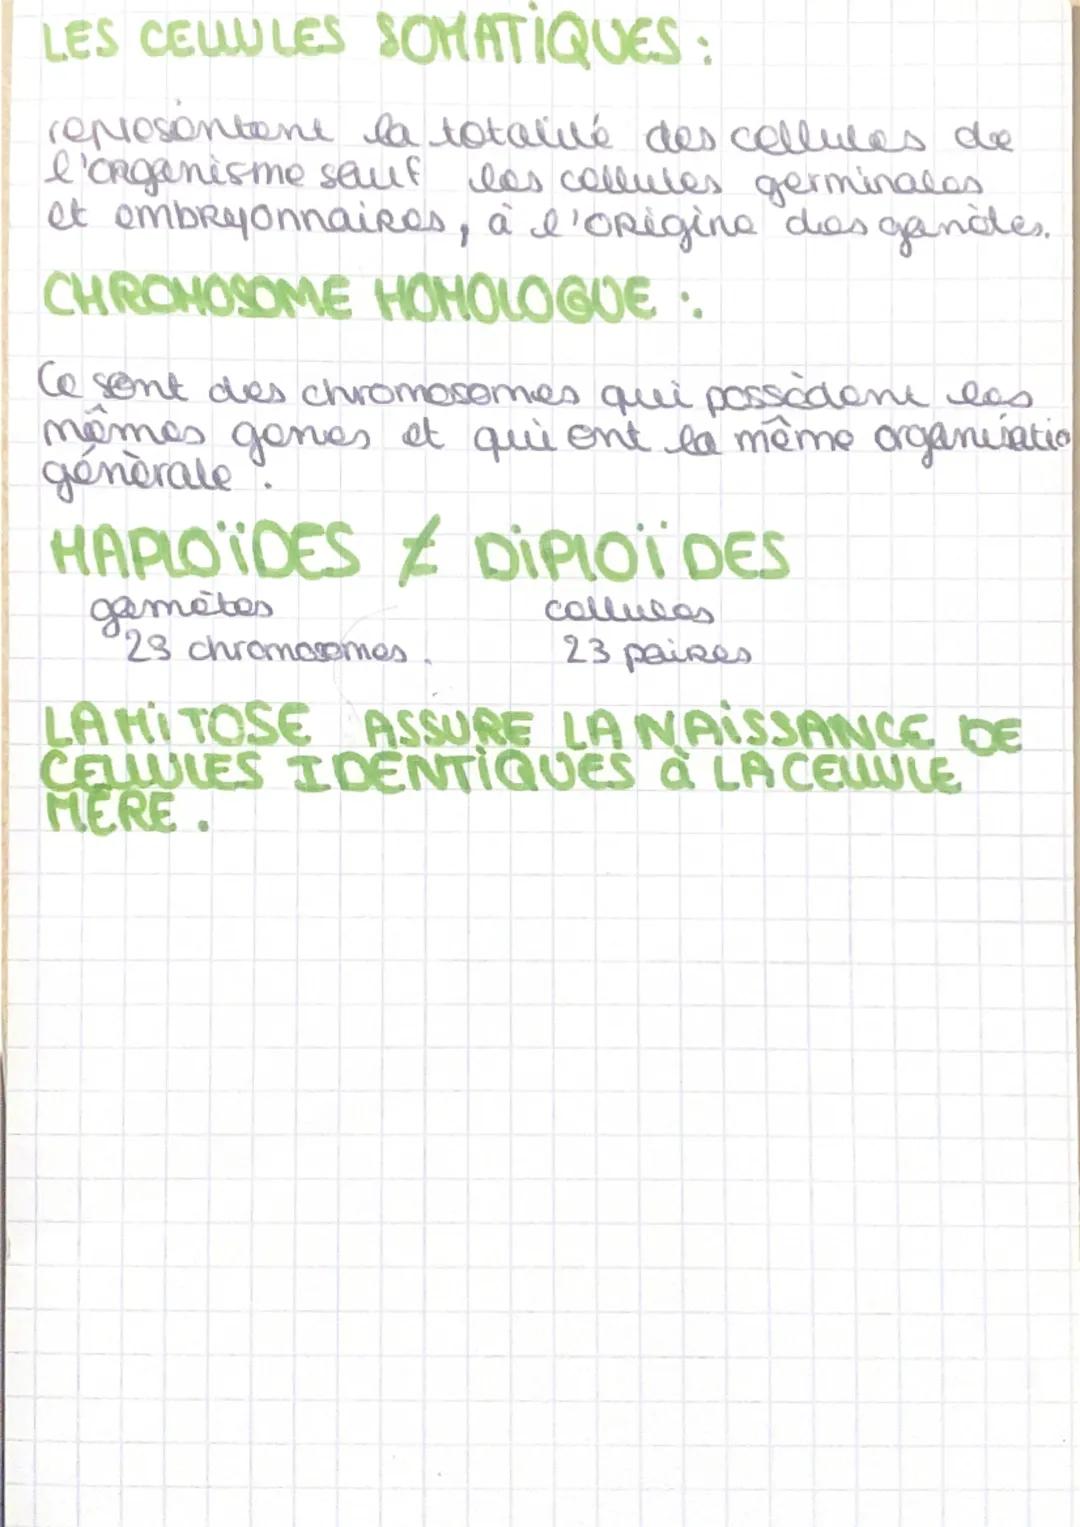 LES CELLULES SOMATIQUES :
représentent la totalité des cellules de
l'organisme sauf les cellules germinales
et embryonnaires, à l'origine des
CHROMOSOME HOMOLOGUE :
Ce sont des chromosomes qui possèdent les
mêmes gènes et qui ont la même organisatio
générale.
HAPLOÏDES ≠ DIPLOÏDES
gamètes cellules
23 chromosomes. 23 paires
LA MITOSE ASSURE LA NAISSANCE DE
CELLULES IDENTIQUES à LA CELLULE
MÈRE.